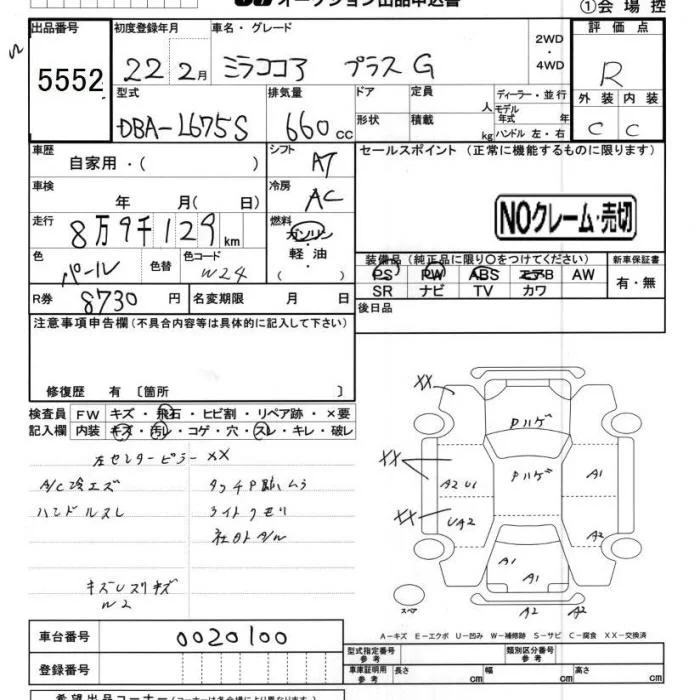 オークション出品申込書
①会場控
出品番号 初度登録年月 車名・グレード 2WD・4WD 評価点
5552 22年 2月 ミラココア プラスG R
型式 排気量 ドア 定員 人 ディーラー・並行 外装 内装
DBA-L675S 660cc 形状 積載 kg モデル年式 年 ハンドル 左・右 C C
車歴 自家用・( ) シフト AT セールスポイント (正常に機能するものに限ります)
車検 年 月( 日) 冷房 AC
NOクレーム・売切
走行 8万9千129km 燃料 ガソリン・軽油 ( )
装備品 (純正品に限り○をつけてください) 新車保証書
色 パール 色替 色コード W24 PS PW ABS エアB AW 有・無
SR ナビ TV カワ
R券 8730円 名変期限 月 日 後日品
注意事項申告欄 (不具合内容等は具体的に記入して下さい)
修復歴 有 〔箇所 〕
検査員 FW キズ・飛石・ヒビ割・リペア跡・×要
記入欄 内装 キズ・汚レ・コゲ・穴・スレ・キレ・破レ
左センターピラーXX
A/C冷エズ タッチP跡ムラ
ハンドルスレ ライトクモリ
社外A/W
キズUスリキズ
W2
XX
Pハゲ
XX Pハゲ A1
A2 U1
XX UA2 A2
A1
A1
スペア A2 A2
A－キズ E－エクボ U－凹み W－補修跡 S－サビ C－腐食 XX－交換済
車台番号 0020100
型式指定番号 参考 類別区分番号 参考
登録番号 車庫証明用 参考 長さ cm 幅 cm 高さ cm
希望出品コーナー